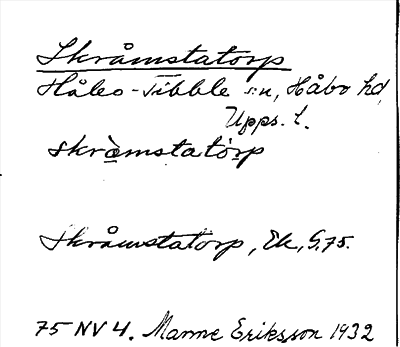 Skråmstatorp
Håbo-Tibble s:n, Håbo hd,
Upps. l.
skrämstatòrp
Skråmstatorp, Ek, G. 75.
75 NV 4. Manne Eriksson 1932